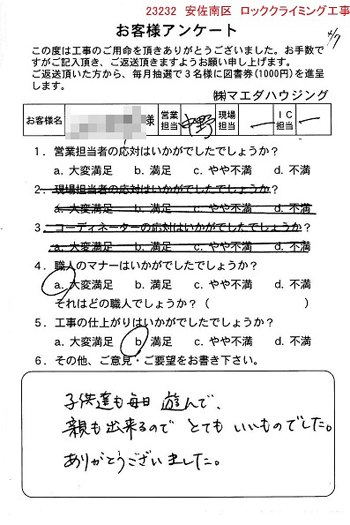 23232 安佐南区 ロッククライミング工事
4/7
お客様アンケート
この度は工事のご用命を頂きありがとうございました。お手数で
すがご記入頂き、ご返送頂きますようお願い申し上げます。
ご返送頂いた方から、毎月抽選で3名様に図書券(1000円)を進呈
します。
㈱マエダハウジング
お客様名 様 営業担当 中野 現場担当 ー IC担当 ー
1．営業担当者の応対はいかがでしたでしょうか？
a. 大変満足 b. 満足 c. やや不満 d. 不満
2．現場担当者の応対はいかがでしたでしょうか？
a. 大変満足 b. 満足 c. やや不満 d. 不満
3．コーディネーターの応対はいかがでしたでしょうか？
a. 大変満足 b. 満足 c. やや不満 d. 不満
4．職人のマナーはいかがでしたでしょうか？
a. 大変満足 b. 満足 c. やや不満 d. 不満
それはどの職人でしょうか？（ ）
5．工事の仕上がりはいかがでしたでしょうか？
a. 大変満足 b. 満足 c. やや不満 d. 不満
6．その他、ご意見・ご要望をお書き下さい。
子供達も毎日 遊んで、
親も出来るので とても いいものでした。
ありがとうございました。